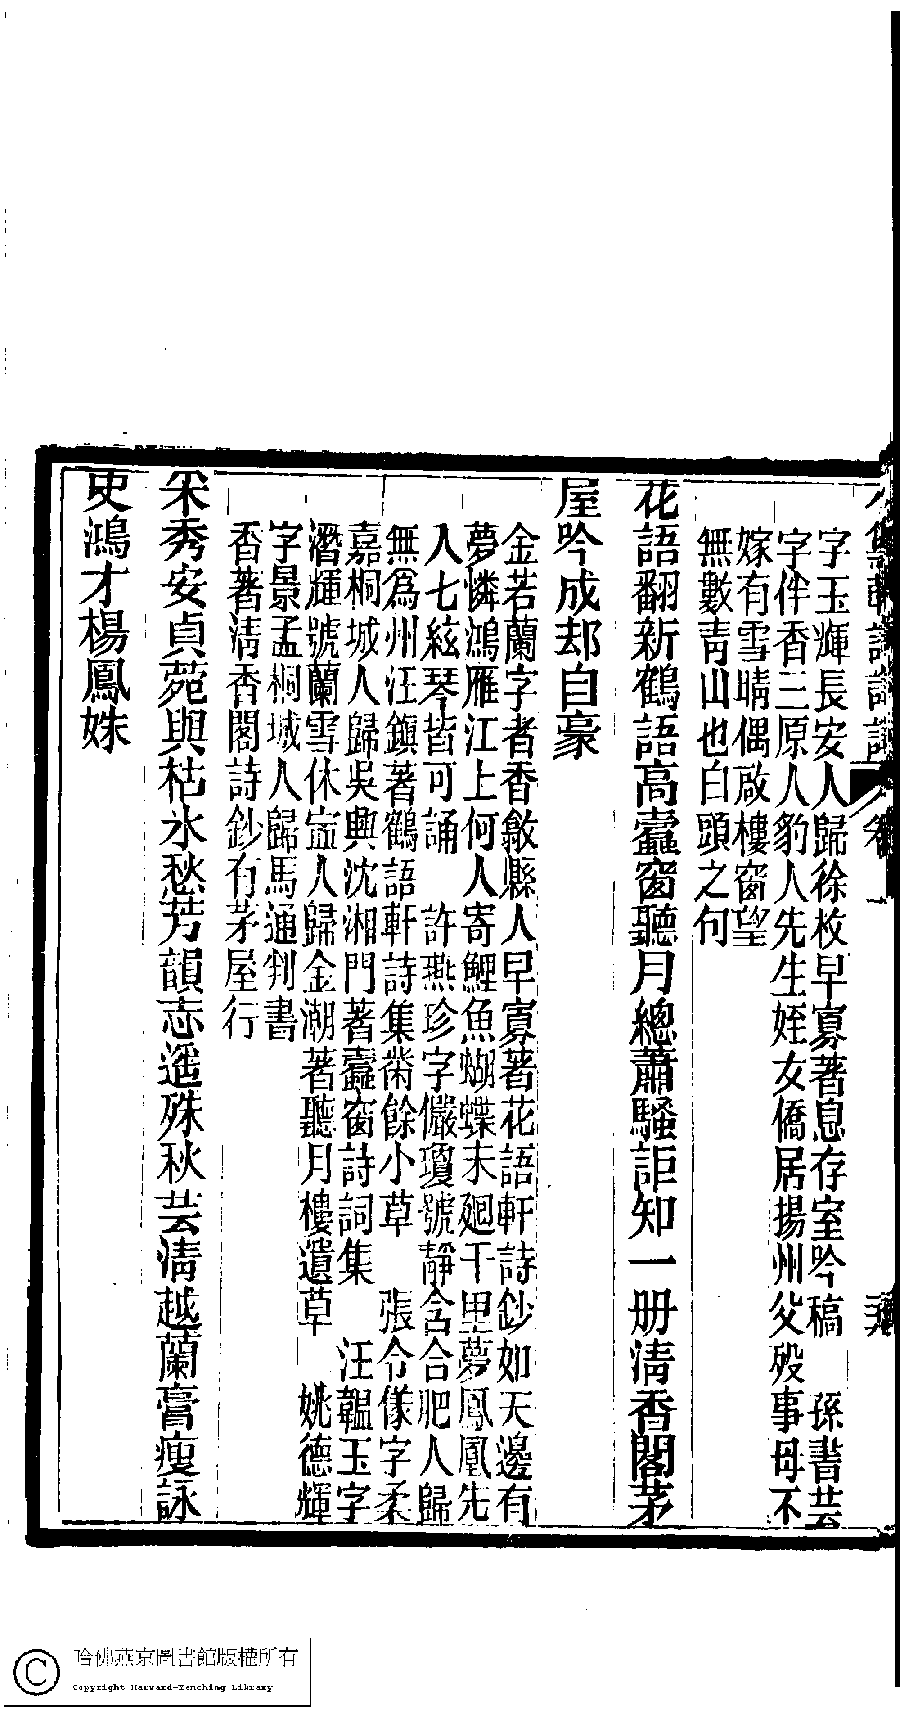 字玉輝長安人歸徐枚早寡著息存室吟稿　孫書芸
字伴香三原人豹人先生姪女僑居揚州父殁事母不
嫁有雪晴偶啟樓窗望
無數靑山也白頭之句
花語翻新鶴語高蠹窗聽月總蕭騷詎知一册淸香閣茅
屋吟成却自豪
金若蘭字者香歙縣人早寡著花語軒詩鈔如天邊有
夢憐鴻雁江上何人寄鯉魚蝴蝶未廻千里夢鳳凰先
入七絃琴皆可誦　許燕珍字儷瓊號靜含合肥人歸
無爲州汪鎭著鶴語軒詩集黹餘小草　張令儀字柔
嘉桐城人歸吳興沈湘門著蠹窗詩詞集　汪韞玉字
潛輝號蘭雪休寍人歸金潮著聽月樓遺草　姚德輝
字景孟桐城人歸馬通判書
香著淸香閣詩鈔有茅屋行
宋秀安貞菀與枯氷愁芳韻志遥殊秋芸淸越蘭膏瘦詠
史鴻才楊鳳姝
哈佛燕京圖書館版權所有
Copyright Harvard-Yenching Library